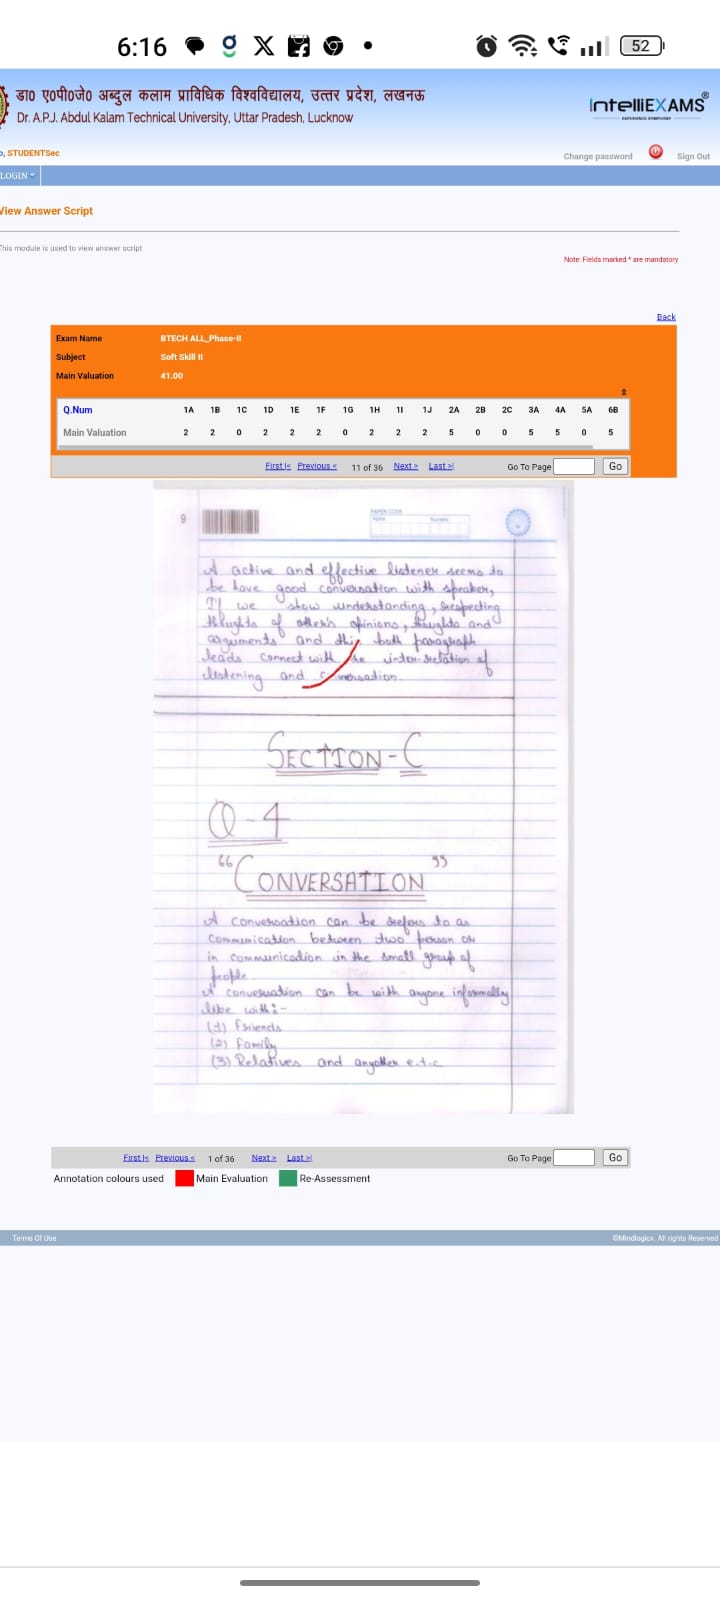 6:16
52
डा0 ए0पी0जे0 अब्दुल कलाम प्राविधिक विश्वविद्यालय, उत्तर प्रदेश, लखनऊ
Dr. A.P.J. Abdul Kalam Technical University, Uttar Pradesh, Lucknow
IntelliEXAMS®
o, STUDENTSec
Change password Sign Out
LOGIN
View Answer Script
This module is used to view answer script
Note: Fields marked * are mandatory
Back
Exam Name BTECH ALL_Phase-II
Subject Soft Skill II
Main Valuation 41.00
Q.Num 1A 1B 1C 1D 1E 1F 1G 1H 1I 1J 2A 2B 2C 3A 4A 5A 6B
Main Valuation 2 2 0 2 2 2 0 2 2 2 5 0 0 5 5 0 5
First|< Previous < 11 of 36 Next > Last >| Go To Page Go
9
PAPER CODE
A active and effective listener seems to
be have good conversation with speaker,
If we show understanding, respecting
thlughts of other's opinions, thoughts and
arguments and this both paragraph
leads connect with the inter-relation of
listening and conversation.
SECTION-C
Q-4
“CONVERSATION”
A conversation can be refers to as
communication between two person or
in communication in the small group of
people.
A conversation can be with anyone informally
like with:-
(1) Friends
(2) Family
(3) Relatives and anyother e.t.c
First|< Previous < 1 of 36 Next > Last >| Go To Page Go
Annotation colours used Main Evaluation Re-Assessment
Terms Of Use ©Mindlogicx. All rights Reserved